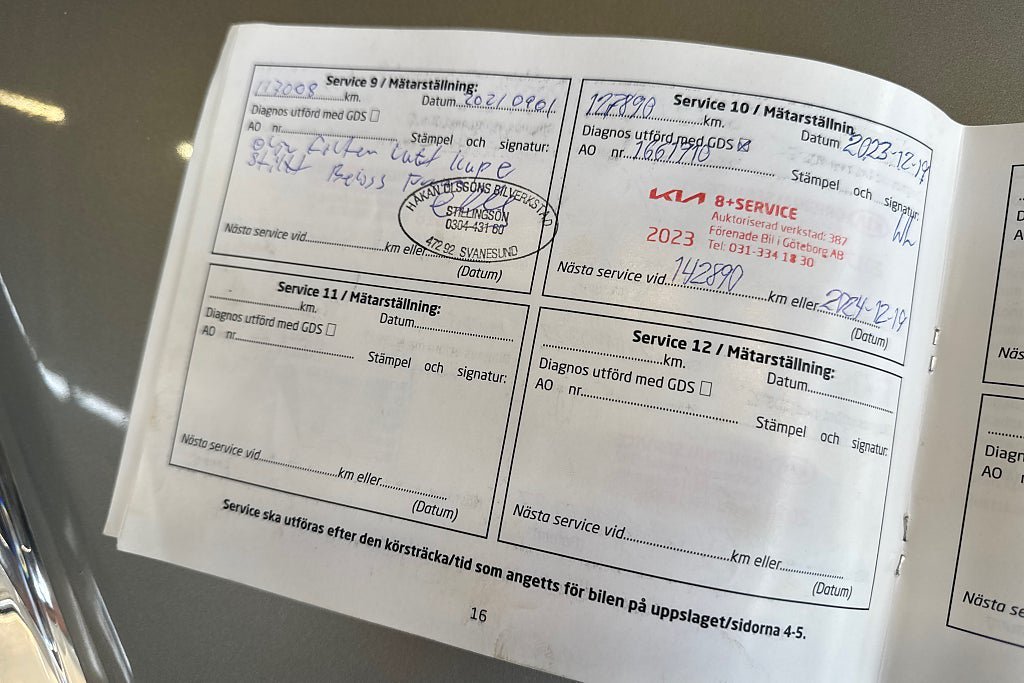 Service 9 / Mätarställning:
113008 km. Datum 2021 0901
Diagnos utförd med GDS
AO nr. Stämpel och signatur:
olja filter luft kupe
HÅKAN OLSSONS BILVERKSTAD
STILLINGSÖN
0304-431 60
472 92 SVANESUND
Nästa service vid km eller
(Datum)
Service 10 / Mätarställnin
127890 km. Datum 2023-12-19
Diagnos utförd med GDS
AO nr. 1661710
Stämpel och signatur:
KIA 8+SERVICE
Auktoriserad verkstad: 387
Förenade Bil i Göteborg AB
2023 Tel: 031-334 18 30
Nästa service vid 142890 km eller 2024-12-19
(Datum)
Service 11 / Mätarställning:
km. Datum
Diagnos utförd med GDS
AO nr.
Stämpel och signatur:
Nästa service vid km eller
(Datum)
Service 12 / Mätarställning:
km. Datum
Diagnos utförd med GDS
AO nr.
Stämpel och signatur:
Nästa service vid km eller
(Datum)
Service ska utföras efter den körsträcka/tid som angetts för bilen på uppslaget/sidorna 4-5.
16
Diagn
AO n
Näst
Diagn
AO
Nästa se